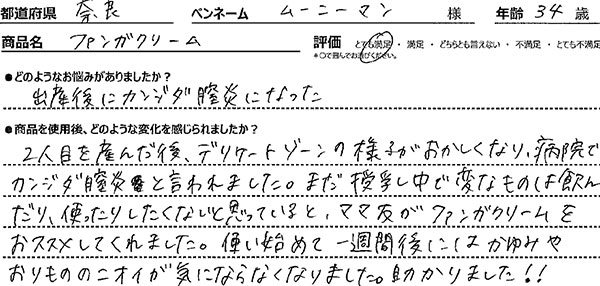 都道府県 奈良 ペンネーム ムーニーマン 様 年齢 34 歳
商品名 ファンガクリーム 評価 とても満足 ・ 満足 ・ どちらとも言えない ・ 不満足 ・ とても不満足
*○で囲んでお選びください。
●どのようなお悩みがありましたか?
出産後にカンジダ膣炎になった
●商品を使用後、どのような変化を感じられましたか?
2人目を産んだ後、デリケートゾーンの様子がおかしくなり、病院で
カンジダ膣炎と言われました。まだ授乳中で変なものは飲ん
だり、使ったりしたくないと思っていると、ママ友がファンガクリームを
おススメしてくれました。使い始めて一週間後にはかゆみや
おりもののニオイが気にならなくなりました。助かりました!!